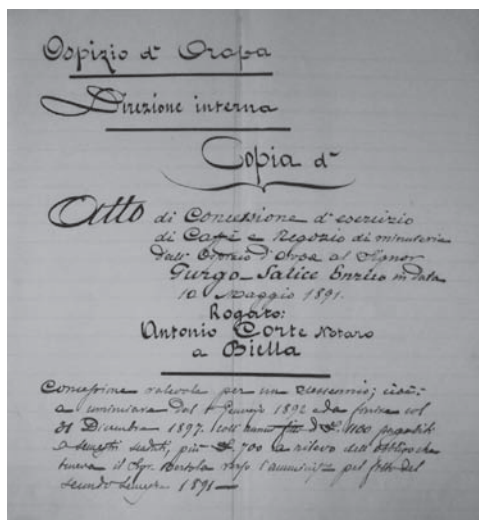 Ospizio d' Oropa
Direzione interna
Copia d'
Atto di Concessione d'esercizio
di Caffè e Negozio di minuterie
dall' Ospizio d'Oropa al Signor
Gurgo-Salice Enrico in data
10 Maggio 1891.
Rogato:
Antonio Corte Notaro
a Biella
Concessione valevole per un sessennio; cioè:
a cominciare dal 1 Gennajo 1892 e da finire col
31 Dicembre 1897. coll' annuo di £. 1100 pagabili
a semestri scaduti, più £. 700 a rilievo dell' obbligo che
teneva il Sigr. Bertola verso l'amminist. pel fitto del
secondo semestre 1891 —